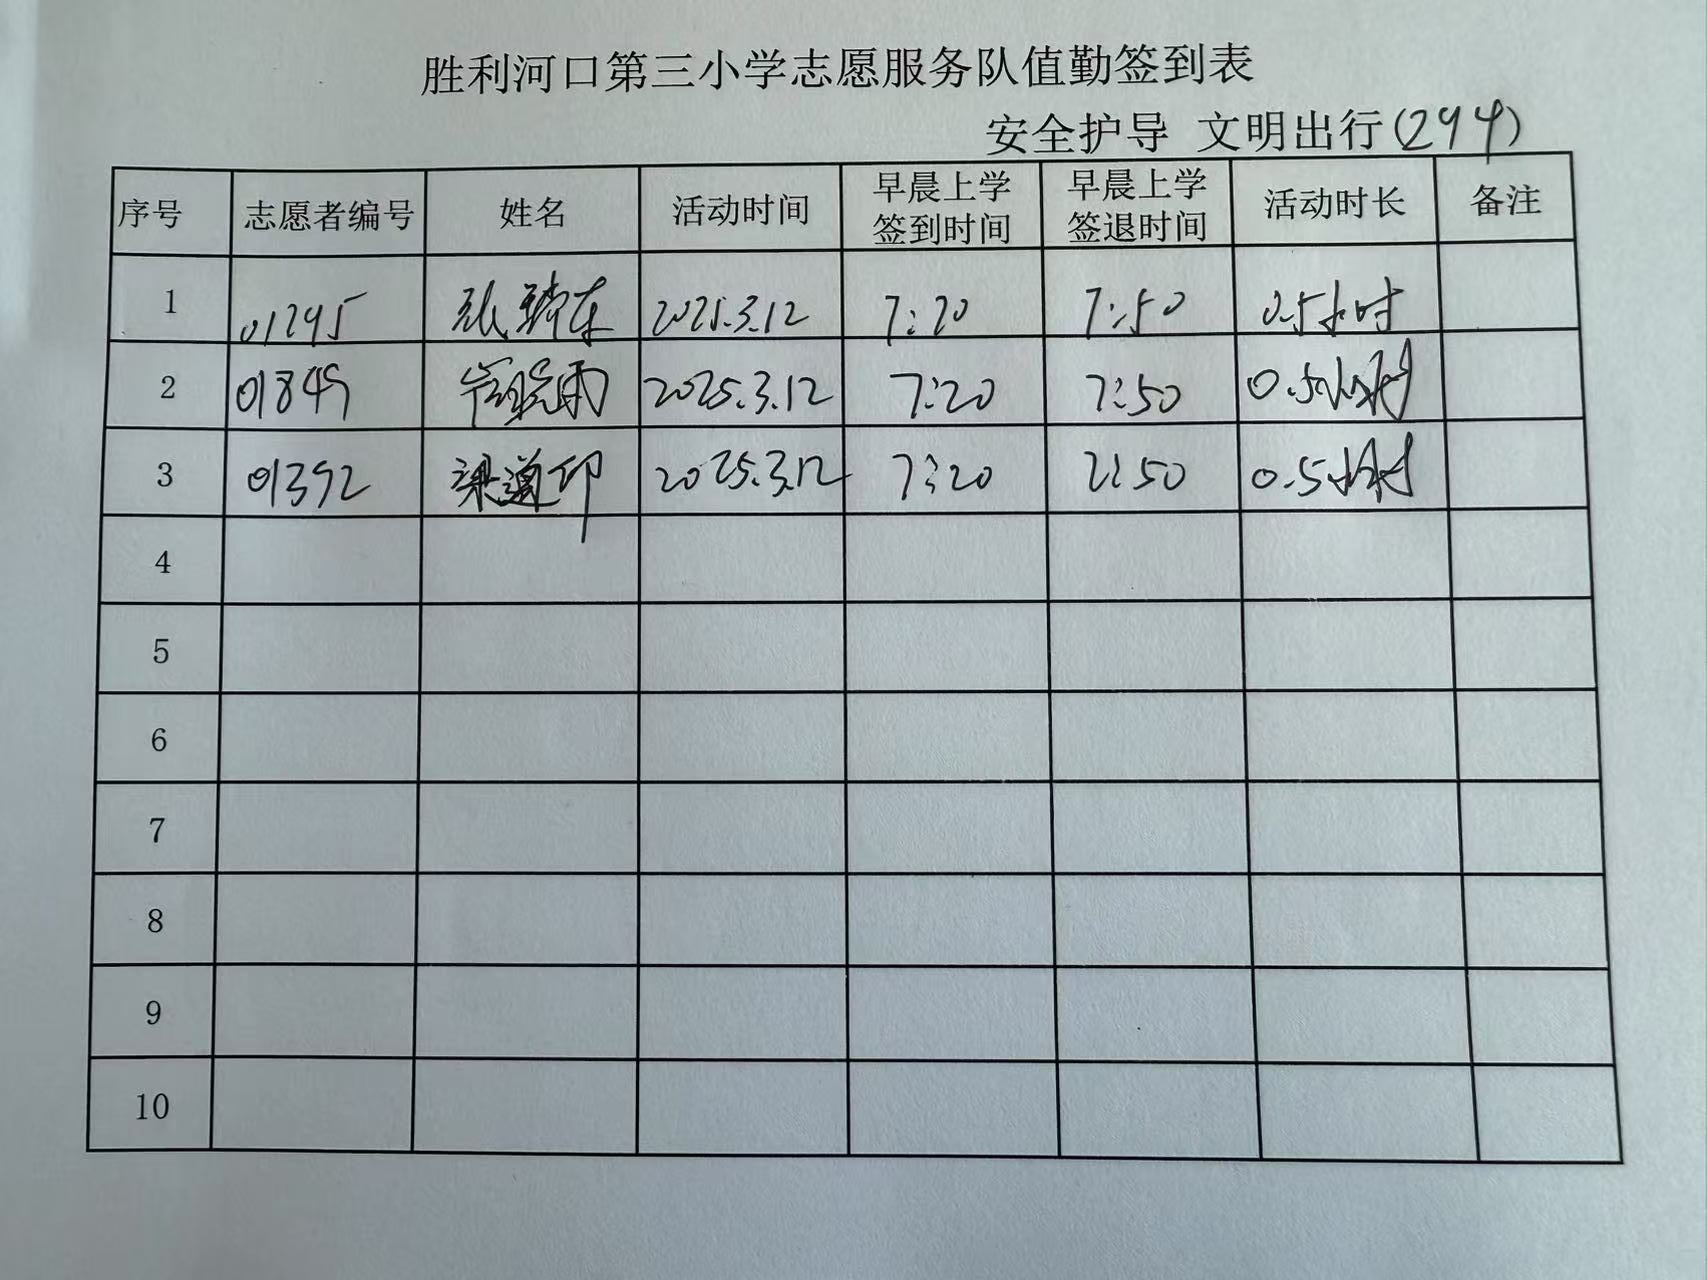 胜利河口第三小学志愿服务队值勤签到表
安全护导 文明出行(294)
序号 志愿者编号 姓名 活动时间 早晨上学签到时间 早晨上学签退时间 活动时长 备注
1 01295 张 东 2025.3.12 7:20 7:50 0.5小时
2 01849 雨 2025.3.12 7:20 7:50 0.5小时
3 01392 梁道印 2025.3.12 7:20 7:50 0.5小时
4
5
6
7
8
9
10